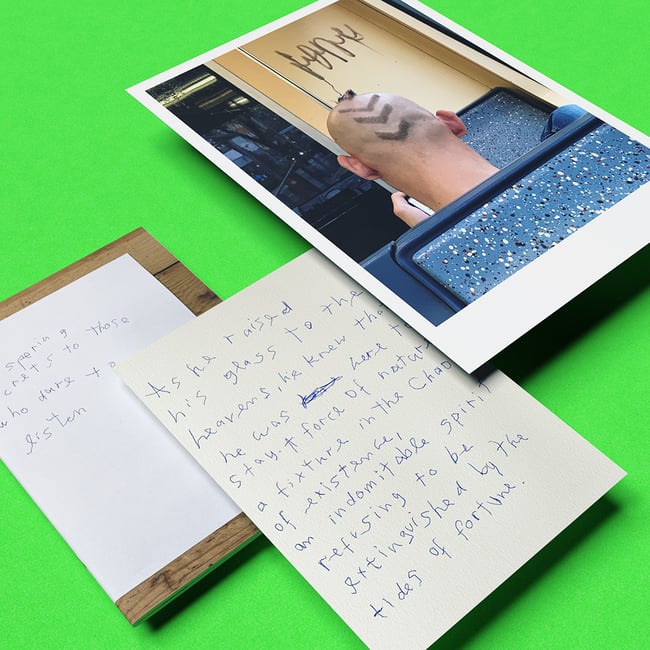 spering
crets to those
who dare
listen
As he raised
his glass to the
heavens, he knew tha
he was here to
stay, force of natur
a fixture in the Chao
of existence,
an indomitable spirit
refusing to be
extinguished by the
tides of fortune.